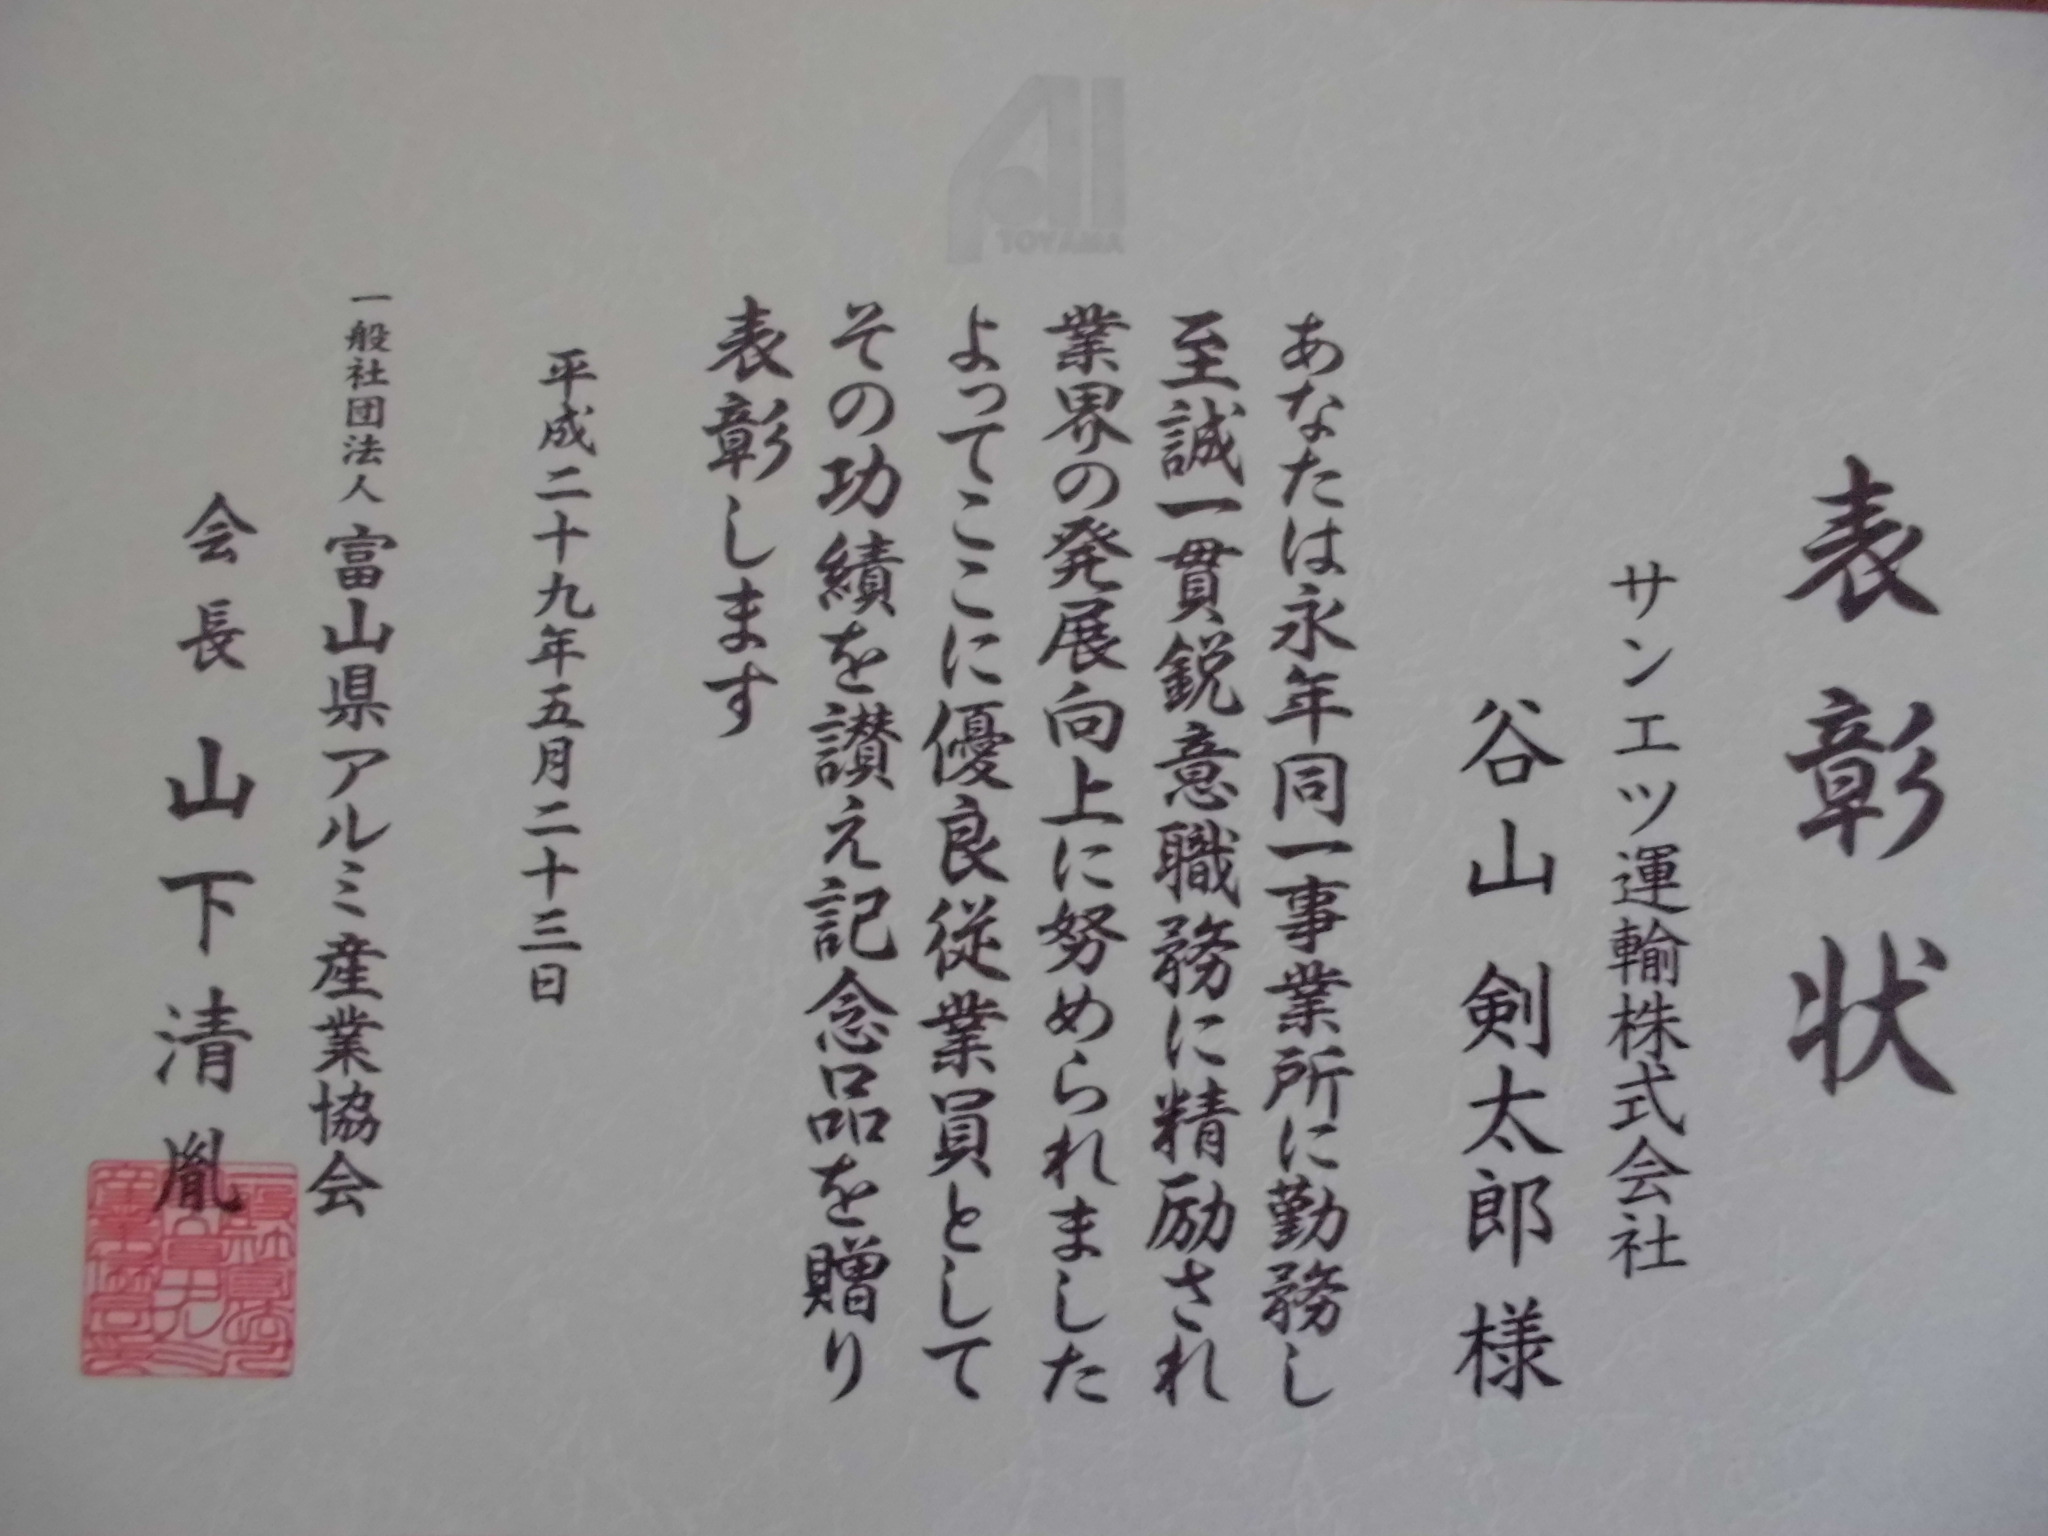 表彰状
サンエツ運輸株式会社
谷山剣太郎様
あなたは永年同一事業所に勤務し
至誠一貫鋭意職務に精励され
業界の発展向上に努められました
よってここに優良従業員として
その功績を讃え記念品を贈り
表彰します
平成二十九年五月二十三日
一般社団法人富山県アルミ産業協会
会長山下清胤
TOYAMA